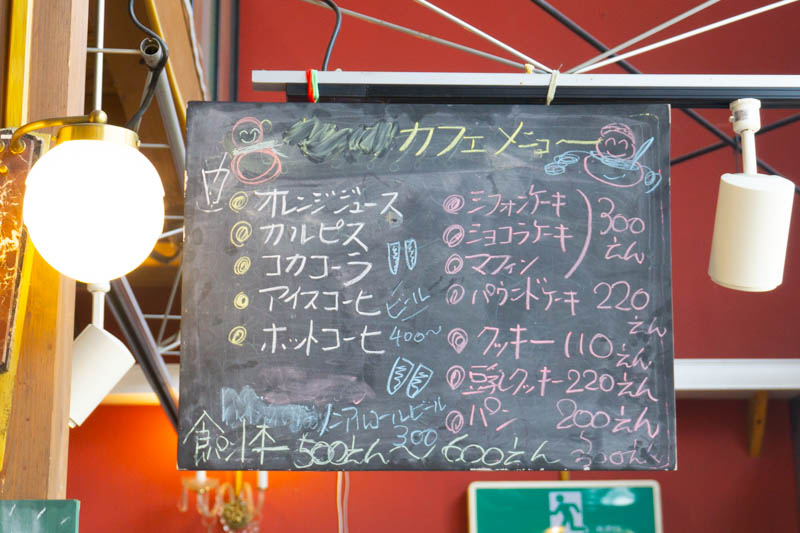 カフェメニュー
オレンジジュース
カルピス
コカコーラ
アイスコーヒ
ホットコーヒ
ビール
400〜
ノンアルコールビール
300
シフォンケーキ
ショコラケーキ
マフィン
300
えん
パウンドケーキ 220
えん
クッキー 110
えん
豆乳クッキー 220えん
パン 200えん
〜
300えん
500えん〜600えん